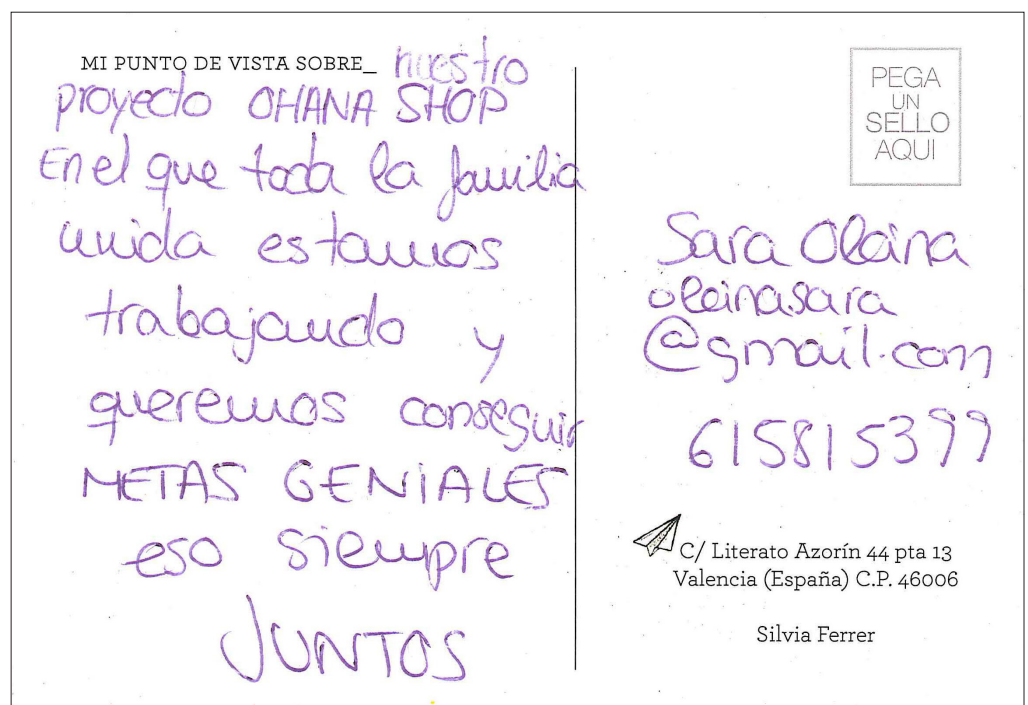 MI PUNTO DE VISTA SOBRE_ nuestro
proyecto OHANA SHOP
En el que toda la familia
unida estamos
trabajando y
queremos conseguir
METAS GENIALES
eso siempre
JUNTOS
PEGA
UN
SELLO
AQUI
Sara Oleina
oleinasara
@gmail.com
615815399
C/ Literato Azorín 44 pta 13
Valencia (España) C.P. 46006
Silvia Ferrer